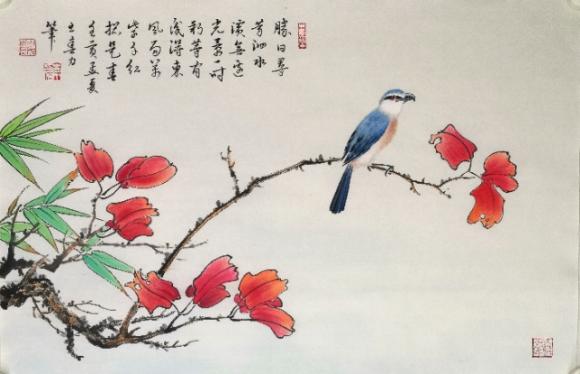 勝日尋
芳泗水
濱無邊
光景一时
新等閒
識得東
風面萬
紫千红
總是春
壬寅孟夏
筆